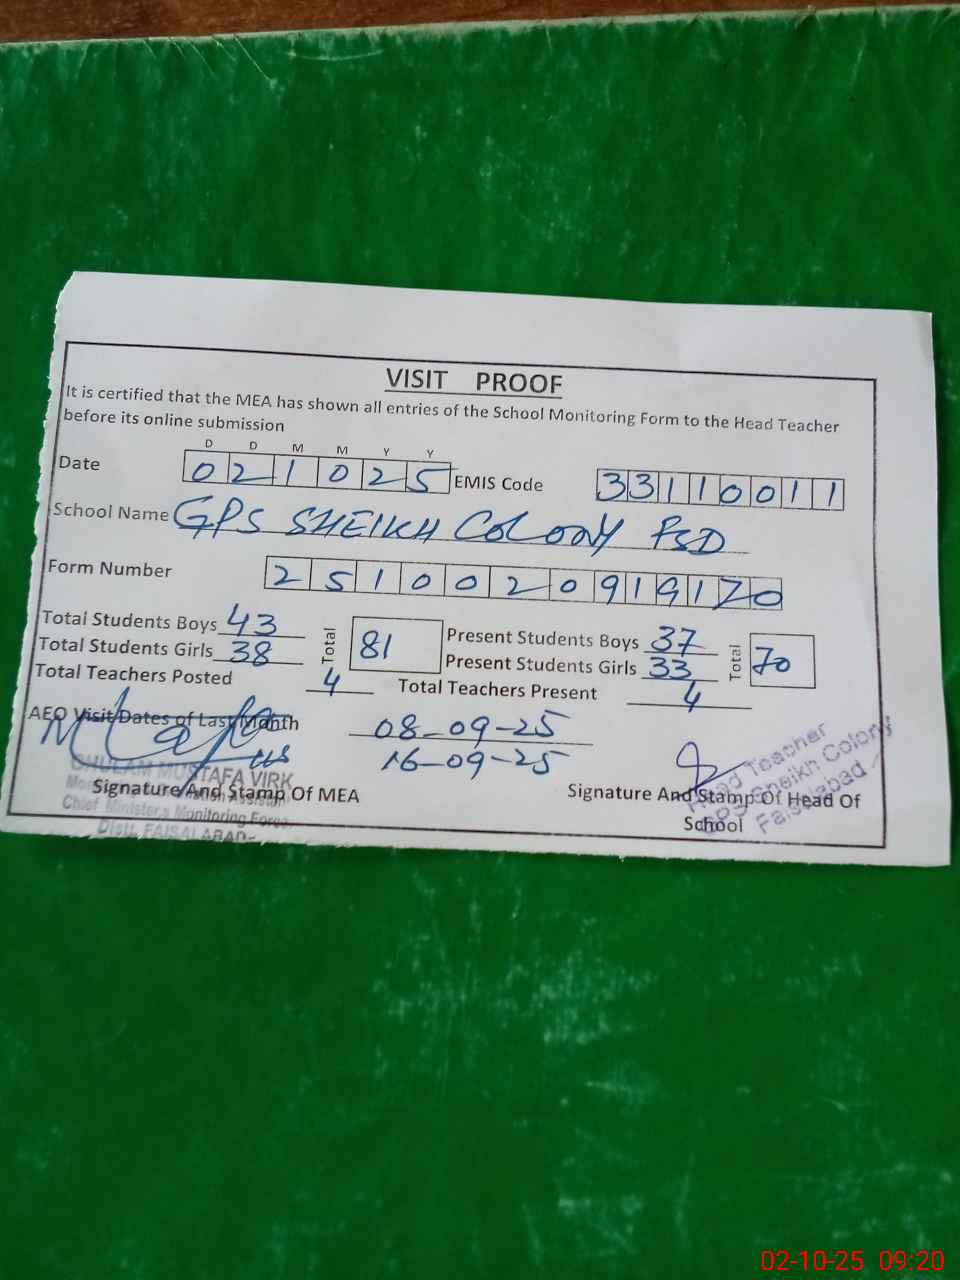 VISIT PROOF
It is certified that the MEA has shown all entries of the School Monitoring Form to the Head Teacher
before its online submission
D D M M Y Y
Date 021025 EMIS Code 33110011
School Name GPS SHEIKH COLONY FSD
Form Number 2510020919170
Total Students Boys 43 Total 81 Present Students Boys 37 Total 70
Total Students Girls 38 Present Students Girls 33
Total Teachers Posted 4 Total Teachers Present 4
AEO Visit Dates of Last Month 08-09-25
16-09-25
GHULAM MUSTAFA VIRK
Signature And Stamp Of MEA
Chief Minister's Monitoring Force
Distt. FAISALABAD
Signature And Stamp Of Head Of
School
Head Teacher
GPS Sheikh Colony
Faisalabad
02-10-25 09:20